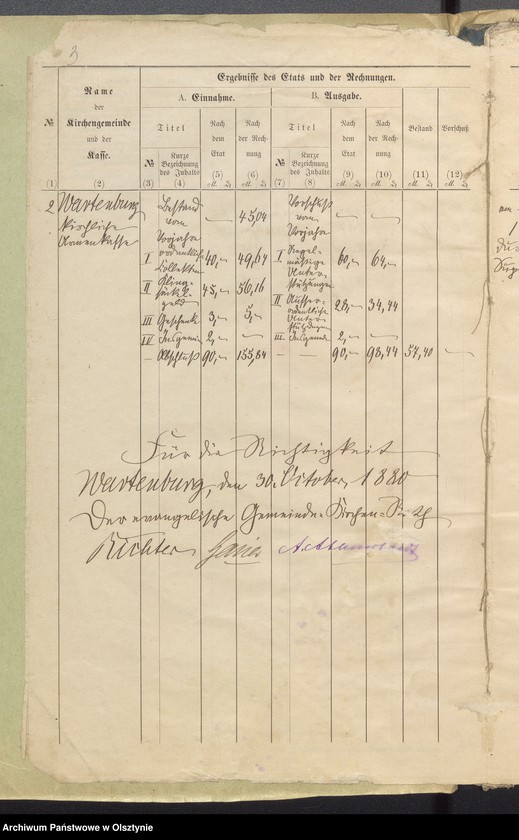 3
Ergebnisse des Etats und der Rechnungen.
Name
der
Kirchengemeinde
und der
Kasse.
№
A. Einnahme.
B. Ausgabe.
Titel
Nach
dem
Etat
Nach
der Rech-
nung
Titel
Nach
dem
Etat
Nach
der Rech-
nung
Bestand
Vorschuß
№
Kurze
Bezeichnung
des Inhalts
№
Kurze
Bezeichnung
des Inhalts
(1) (2) (3) (4) (5) (6) (7) (8) (9) (10) (11) (12)
2 Wartenburg
kirchliche
Armenkasse
Bestand
vom
Vorjahre — 45,04
I ordentliche
Collekten 40,— 49,64
II Kling-
säckel-
geld 45,— 56,16
III Geschenke 3,— 5,—
IV Insgemein 2,— —
— Abschluß 90,— 155,84
Vorschuß
vom
Vorjahre — —
I Regel-
mäßige
Unter-
stützungen 60,— 64,—
II Ausser-
ordentliche
Unter-
stützungen 28,— 34,44
III Insgemein 2,— —
— — 90,— 98,44 57,40 —
Für die Richtigkeit
Wartenburg, den 30. October 1880
Der evangelische Gemeinde-Kirchen-Rath
Richter
Archiwum Państwowe w Olsztynie